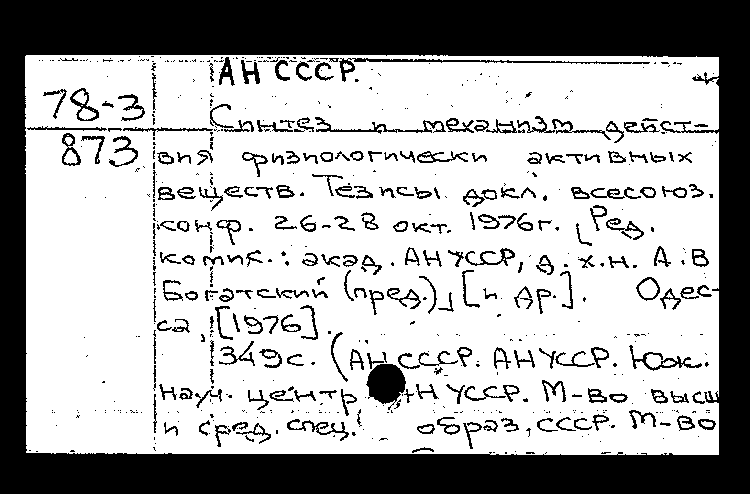 АН СССР.
78-3
Синтез и механизм дейст-
873
вия физиологически активных
веществ. Тезисы докл. всесоюз.
конф. 26-28 окт. 1976г. [Ред.
комик.: акад. АН УССР, д.х.н. А.В
Богатский (пред.)] [и др.]. Одес-
са, [1976].
349с. (АН СССР. АН УССР. Юж.
науч. центр АН УССР. М-во высш
и сред. спец. образ, СССР. М-во